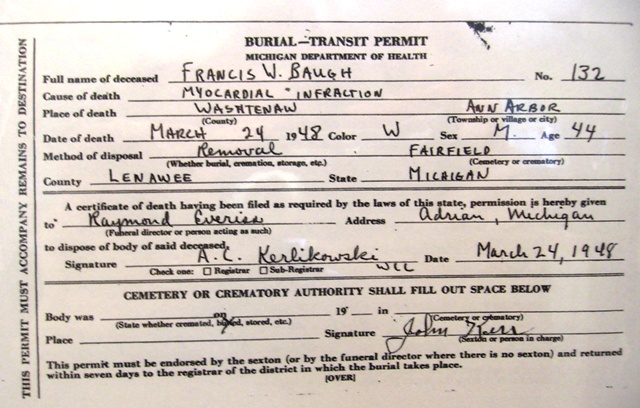 BURIAL—TRANSIT PERMIT
MICHIGAN DEPARTMENT OF HEALTH
Full name of deceased FRANCIS W. BAUGH No. 132
Cause of death MYOCARDIAL INFRACTION
Place of death WASHTENAW ANN ARBOR
(County) (Township or village or city)
Date of death MARCH 24 1948 Color W Sex M. Age 44
Method of disposal Removal FAIRFIELD
(Whether burial, cremation, storage, etc.) (Cemetery or crematory)
County LENAWEE State MICHIGAN
A certificate of death having been filed as required by the laws of this state, permission is hereby given
to Raymond Everiss Address Adrian, Michigan
(Funeral director or person acting as such)
to dispose of body of said deceased.
Signature A. C. Kerlikowski Date March 24, 1948
Check one: Registrar Sub-Registrar WLL
CEMETERY OR CREMATORY AUTHORITY SHALL FILL OUT SPACE BELOW
Body was on 19 in
(State whether cremated, buried, stored, etc.) (Cemetery or crematory)
Place Signature John
(Sexton or person in charge)
This permit must be endorsed by the sexton (or by the funeral director where there is no sexton) and returned
within seven days to the registrar of the district in which the burial takes place.
[OVER]
THIS PERMIT MUST ACCOMPANY REMAINS TO DESTINATION